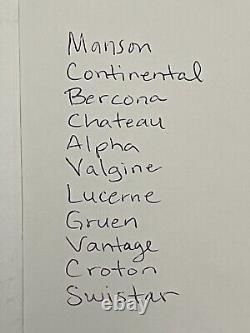 Manson
Continental
Bercona
Chateau
Alpha
Valgine
Lucerne
Gruen
Vantage
Croton
Swistar